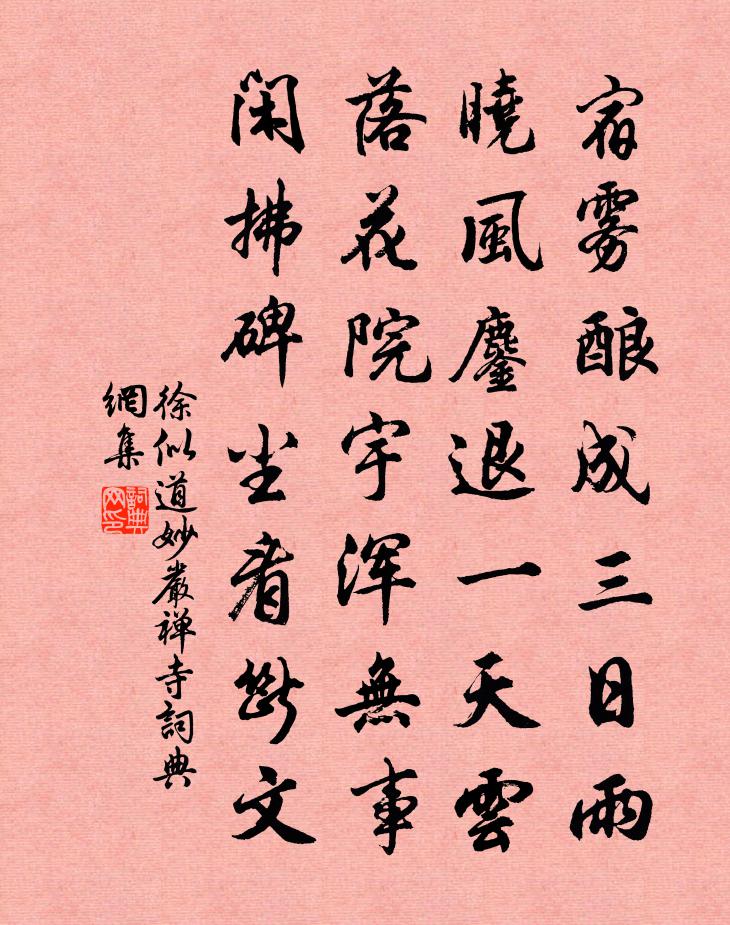 宿雾酿成三日雨
曉風鏖退一天雲
落花院宇浑無事
閑拂碑尘看斷文
徐似道妙嚴禅寺詞典
網集
詞典
网印